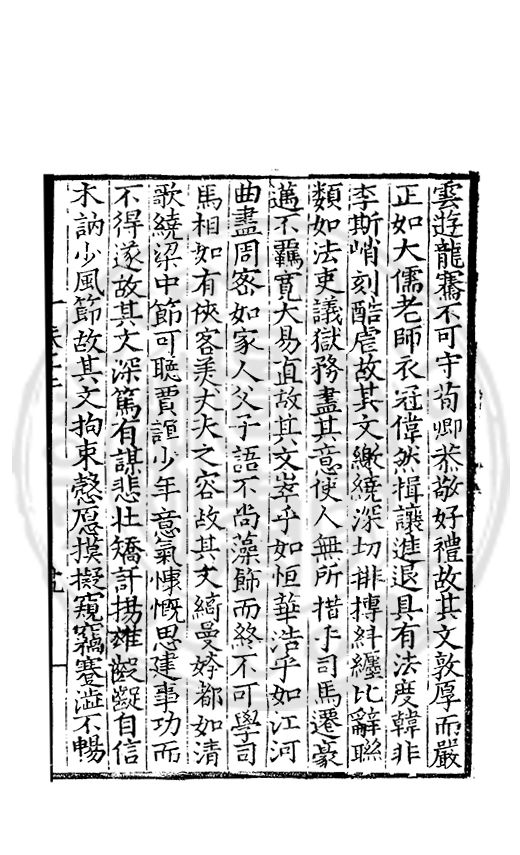 雲遊龍騫不可守荀卿恭敬好禮故其文敦厚而嚴
正如大儒老師衣冠偉然揖讓進退具有法度韓非
李斯峭刻酷虐故其文繳繞深切排搏糾纏比辭聯
類如法吏議獄務盡其意使人無所措手司馬遷豪
邁不羈寛大易直故其文崒乎如恒華浩乎如江河
曲盡周宻如家人父子語不尚藻飾而終不可學司
馬相如有俠客美丈夫之容故其文綺曼姱都如清
歌繞梁中節可聽賈誼少年意氣慷慨思建事功而
不得遂故其文深篤有謀悲壯矯訐揚雄齪齪自信
木訥少風節故其文拘束慤愿摸擬窺竊蹇澁不暢